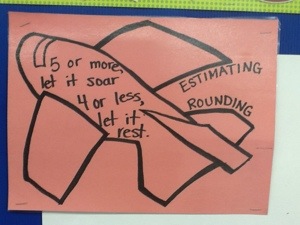 5 or more,
let it soar
4 or less,
let it
rest.
ESTIMATING
ROUNDING